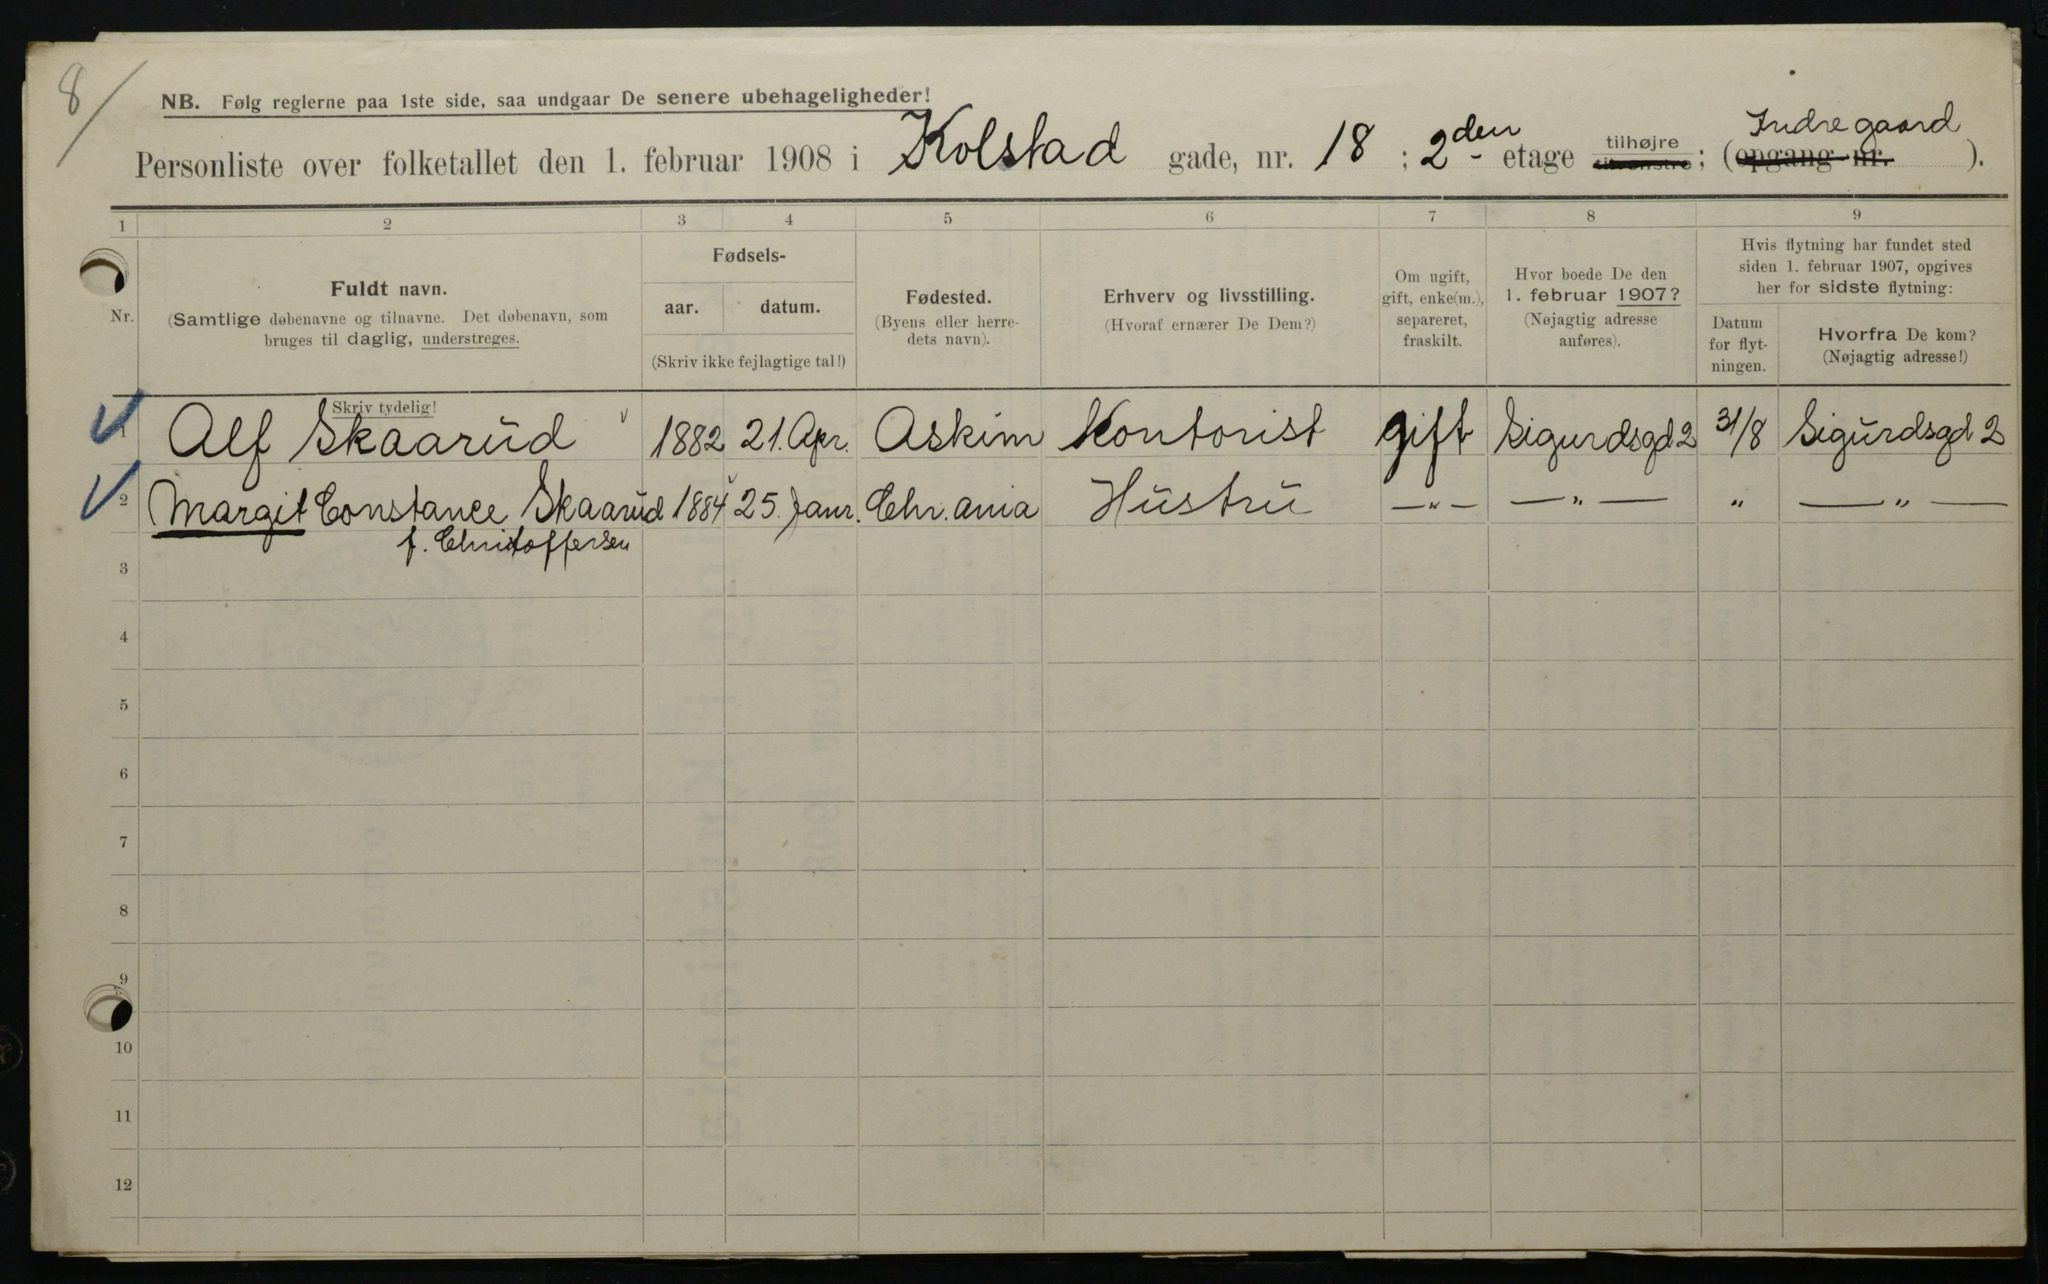 8/
NB. Følg reglerne paa 1ste side, saa undgaar De senere ubehageligheder!
Personliste over folketallet den 1. februar 1908 i Kolstad gade, nr. 18 ; 2den etage tilhøjre tilvenstre ; (opgang nr. Indregaard ).
1 2 3 4 5 6 7 8 9
Nr.
Fuldt navn.
(Samtlige døbenavne og tilnavne. Det døbenavn, som
bruges til daglig, understreges.
Skriv tydelig!
Fødsels-
aar. datum.
(Skriv ikke fejlagtige tal!)
Fødested.
(Byens eller herre-
dets navn).
Erhverv og livsstilling.
(Hvoraf ernærer De Dem?)
Om ugift,
gift, enke(m.),
separeret,
fraskilt.
Hvor boede De den
1. februar 1907?
(Nøjagtig adresse
anføres).
Hvis flytning har fundet sted
siden 1. februar 1907, opgives
her for sidste flytning:
Datum
for flyt-
ningen.
Hvorfra De kom?
(Nøjagtig adresse!)
1 Alf Skaarud 1882 21. Apr. Askim Kontorist gift Sigurdsgd 2 31/8 Sigurdsgd 2
2 Margit Constance Skaarud 1884 25. Janr. Chr.ania Hustru —„— —„— „ —„—
f. Christoffersen
3
4
5
6
7
8
9
10
11
12